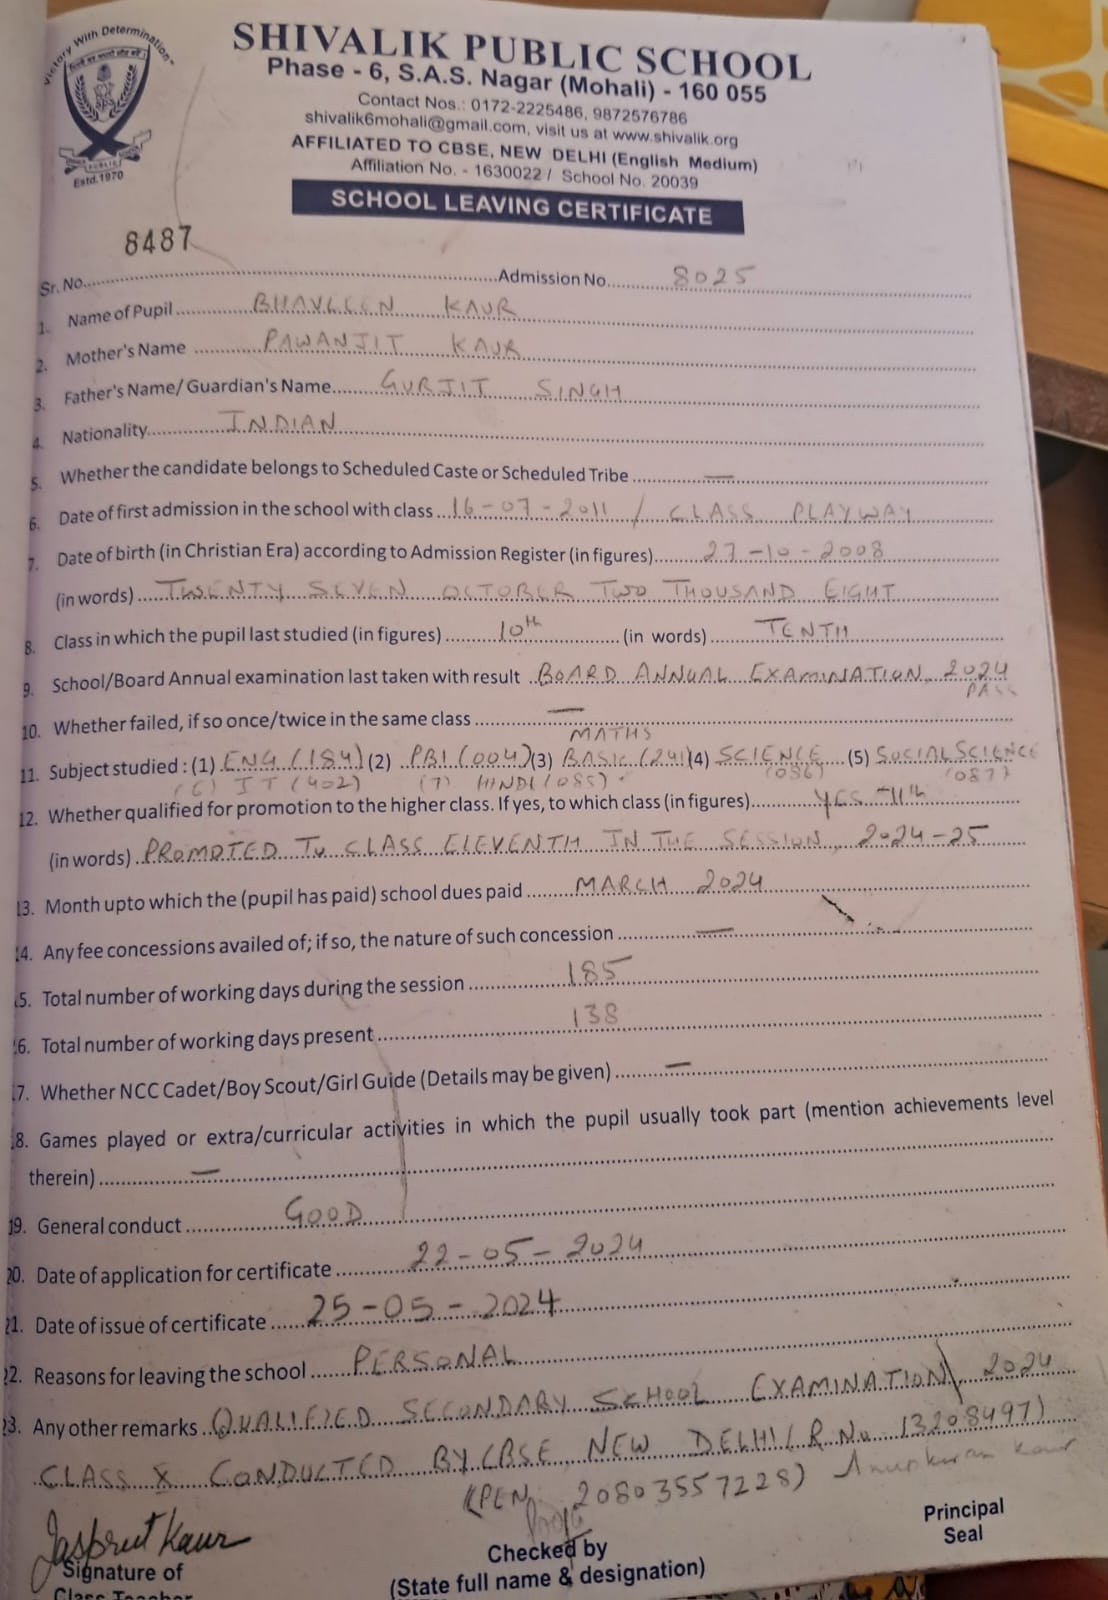 "Victory With Determination"
PUBLIC
Estd.1970
SHIVALIK PUBLIC SCHOOL
Phase - 6, S.A.S. Nagar (Mohali) - 160 055
Contact Nos.: 0172-2225486, 9872576786
shivalik6mohali@gmail.com, visit us at www.shivalik.org
AFFILIATED TO CBSE, NEW DELHI (English Medium)
Affiliation No. - 1630022 / School No. 20039
SCHOOL LEAVING CERTIFICATE
8487
Sr. No. Admission No. 8025
1. Name of Pupil BHAVLEEN KAUR
2. Mother's Name PAWANJIT KAUR
3. Father's Name/ Guardian's Name GURJIT SINGH
4. Nationality INDIAN
5. Whether the candidate belongs to Scheduled Caste or Scheduled Tribe —
6. Date of first admission in the school with class 16-07-2011 / CLASS PLAYWAY
7. Date of birth (in Christian Era) according to Admission Register (in figures) 27-10-2008
(in words) TWENTY SEVEN OCTOBER TWO THOUSAND EIGHT
8. Class in which the pupil last studied (in figures) 10th (in words) TENTH
9. School/Board Annual examination last taken with result BOARD ANNUAL EXAMINATION, 2024
PASS
10. Whether failed, if so once/twice in the same class —
MATHS
11. Subject studied : (1) ENG (184) (2) PBI (004) (3) BASIC (241) (4) SCIENCE (5) SOCIAL SCIENCE
(6) IT (402) (7) HINDI (085) (086) (087)
12. Whether qualified for promotion to the higher class. If yes, to which class (in figures) YES - 11th
(in words) PROMOTED TO CLASS ELEVENTH IN THE SESSION, 2024-25
13. Month upto which the (pupil has paid) school dues paid MARCH 2024
14. Any fee concessions availed of; if so, the nature of such concession —
15. Total number of working days during the session 185
16. Total number of working days present 138
17. Whether NCC Cadet/Boy Scout/Girl Guide (Details may be given) —
18. Games played or extra/curricular activities in which the pupil usually took part (mention achievements level
therein) —
19. General conduct GOOD
20. Date of application for certificate 22-05-2024
21. Date of issue of certificate 25-05-2024
22. Reasons for leaving the school PERSONAL
23. Any other remarks QUALIFIED SECONDARY SCHOOL EXAMINATION, 2024
CLASS X CONDUCTED BY CBSE, NEW DELHI (R.No. 13208497)
(PEN 20803557228) Anupkiran Kaur
Jaspreet Kaur
Signature of
Class Teacher
Checked by
(State full name & designation)
Principal
Seal